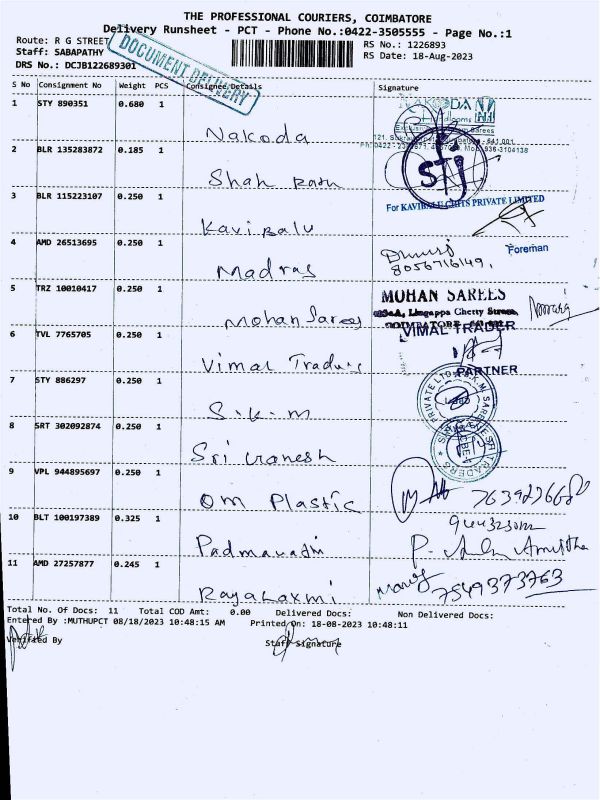 THE PROFESSIONAL COURIERS, COIMBATORE
Delivery Runsheet - PCT - Phone No.:0422-3505555 - Page No.:1
Route: R G STREET
RS No.: 1226893
Staff: SABAPATHY
RS Date: 18-Aug-2023
DRS No.: DCJB122689301
DOCUMENT DELIVERY
S No Consignment No Weight PCS Consignee Details Signature
1 STY 890351 0.680 1 Nakoda
NAKODA
2 BLR 135283872 0.185 1 Shah
STJ
3 BLR 115223107 0.250 1 Kavi Balu
For KAVIBALU GIFTS PRIVATE LIMITED
Foreman
4 AMD 26513695 0.250 1 Madras
8056716149,
5 TRZ 10010417 0.250 1 Mohan Sarees
MOHAN SAREES
Lingappa Chetty Street,
COIMBATORE
6 TVL 7765705 0.250 1 Vimal Traders
VIMAL TRADER
PARTNER
7 STY 886297 0.250 1 S.K.M
8 SRT 302092874 0.250 1 Sri Ganesh
9 VPL 944895697 0.250 1 Om Plastic
10 BLT 100197389 0.325 1 Padmavathi
11 AMD 27257877 0.245 1 Rajalaxmi
Manoj
7549373763
Total No. Of Docs: 11 Total COD Amt: 0.00 Delivered Docs: Non Delivered Docs:
Entered By :MUTHUPCT 08/18/2023 10:48:15 AM Printed On: 18-08-2023 10:48:11
Verified By Staff Signature